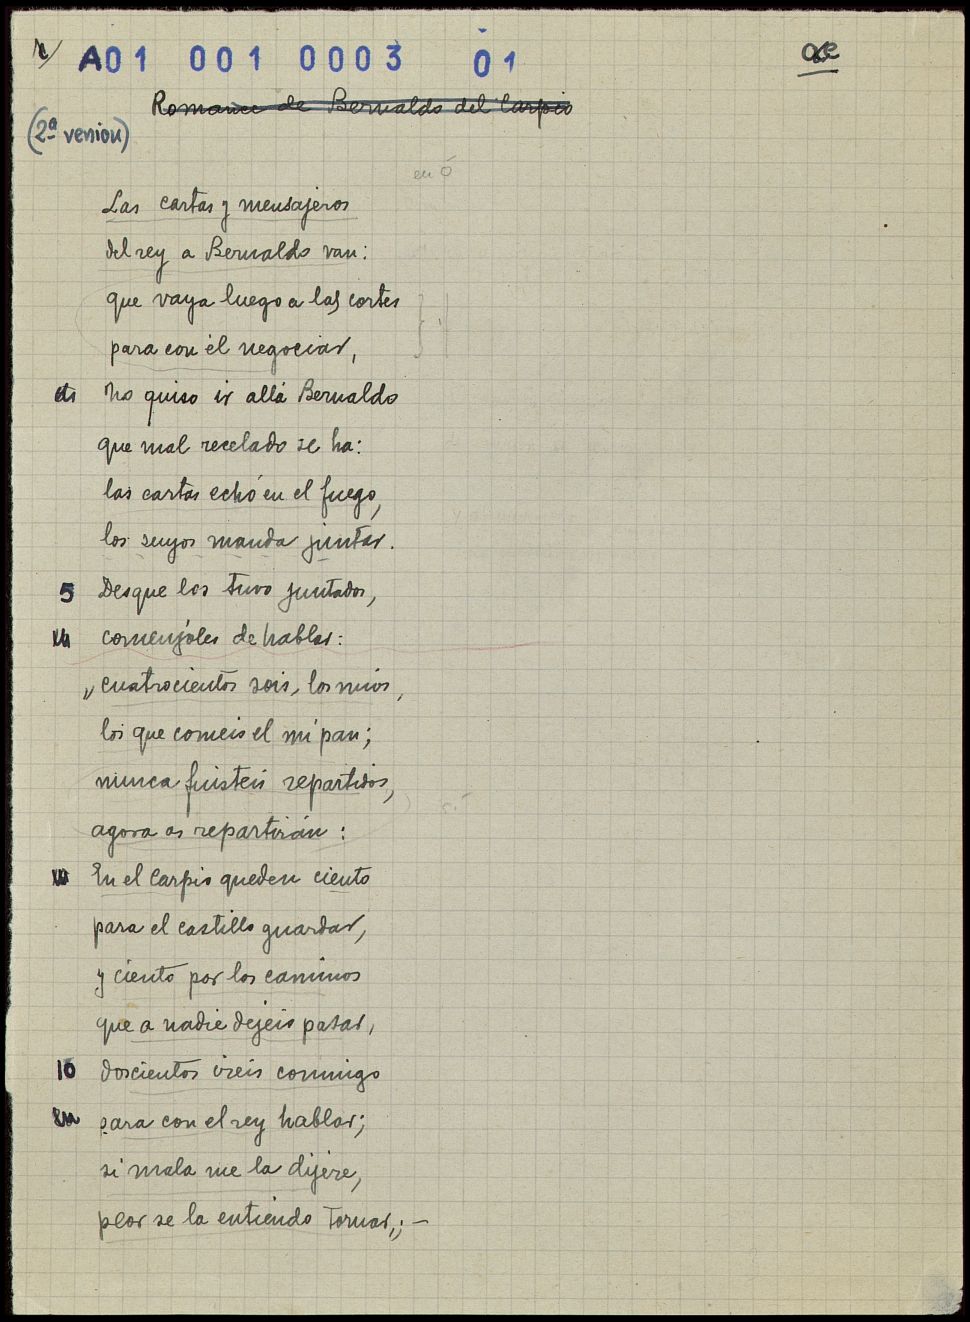 A01 001 0003 01
Romance de Bernaldo del Carpio
(2ª version)
en ó
Las cartas y mensajeros
del rey a Bernaldo van:
que vaya luego a las cortes
para con él negociar,
No quiso ir allá Bernaldo
que mal recelado se ha:
las cartas echó en el fuego,
los suyos manda juntar.
5 Desque los tuvo juntados,
comenzóles de hablar:
"cuatrocientos sois, los mios,
los que comeis el mi pan;
nunca fuisteis repartidos,
agora os repartirán:
En el Carpio queden ciento
para el castillo guardar,
y ciento por los caminos
que a nadie dejéis pasar,
10 doscientos ireis conmigo
para con el rey hablar;
si mala me la dijere,
peor se la entiendo tornar,; —